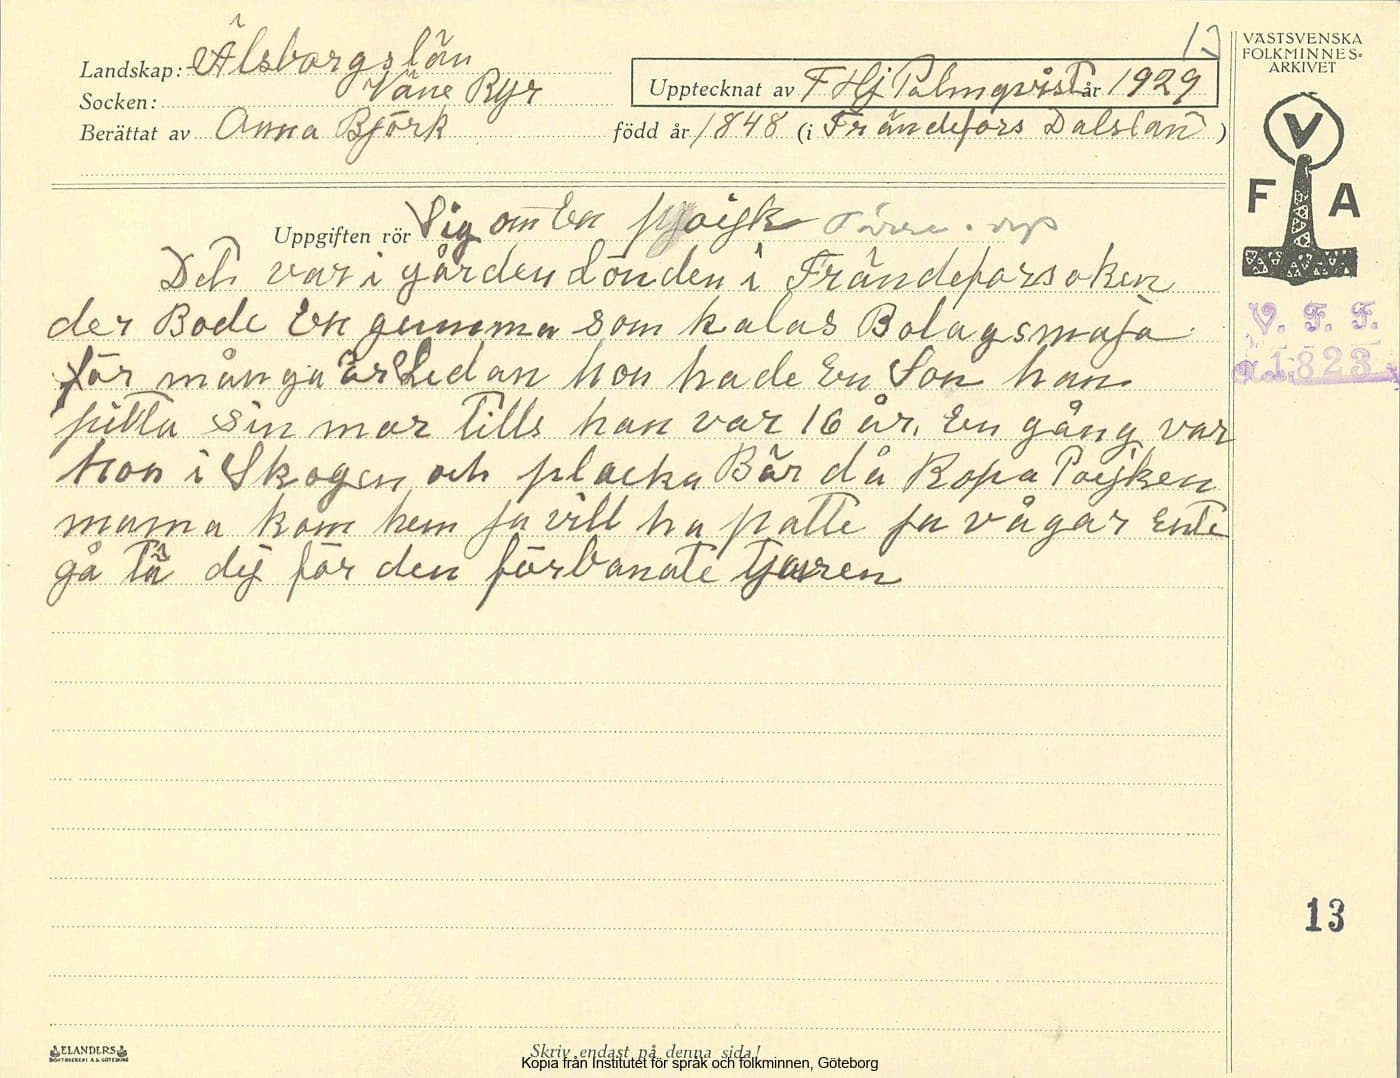 13
VÄSTSVENSKA
FOLKMINNES-
ARKIVET
Landskap: Älsborgslän
Socken: Väne Ryr
Upptecknat av F Hj Palmqvist år 1929
Berättat av Anna Björk född år 1848 (i Frändefors Dalslan )
V
F A
Uppgiften rör Sig om En pojk
Det var i gården Lönden i Frändeforsoken
der Bode En gumma som kalas Bolagsmaja
för många år Sedan hon hade En Son han
pitta sin mor tills han var 16 år. En gång var
hon i Skogen och placka Bär då Ropa Poijken
mama kom hem ja vill ha patte ja vågar Ente
gå tä dij för den förbanate tjuren
V. F. F.
1823
13
ELANDERS
BOKTRYCKERI A.B. GÖTEBORG
Skriv endast på denna sida!
Kopia från Institutet för språk och folkminnen, Göteborg